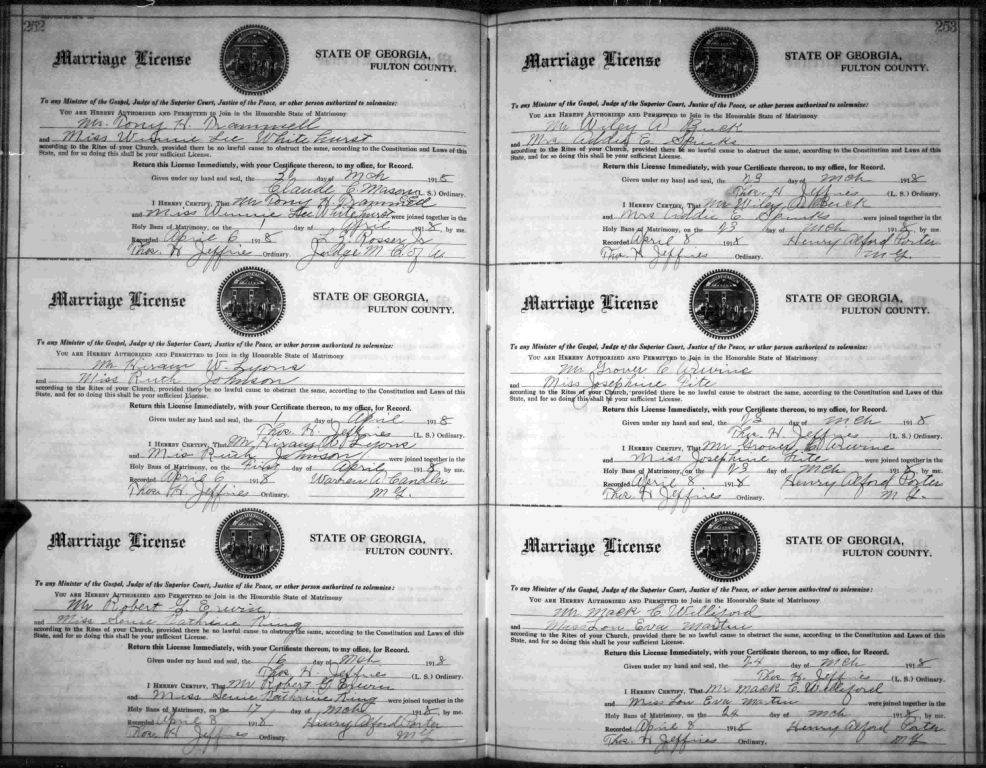 252
Marriage License
STATE OF GEORGIA,
FULTON COUNTY.
To any Minister of the Gospel, Judge of the Superior Court, Justice of the Peace, or other person authorized to solemnize:
YOU ARE HEREBY AUTHORIZED AND PERMITTED to Join in the Honorable State of Matrimony
Mr. Tony H. Brammell
and Miss Winnie Lee Whitehurst
according to the Rites of your Church, provided there be no lawful cause to obstruct the same, according to the Constitution and Laws of this
State, and for so doing this shall be your sufficient License.
Return this License Immediately, with your Certificate thereon, to my office, for Record.
Given under my hand and seal, the day of Mch 1918
Claude C. Mason (L. S.) Ordinary.
I HEREBY CERTIFY, That Mr Tony H Brammell
and Miss Winnie Lee Whitehurst were joined together in the
Holy Bans of Matrimony, on the 1 day of April 1918, by me.
Recorded April 6 1918 L Z Rosser Jr
Thos. H Jeffries Ordinary. Judge M. C. of A
Marriage License
STATE OF GEORGIA,
FULTON COUNTY.
To any Minister of the Gospel, Judge of the Superior Court, Justice of the Peace, or other person authorized to solemnize:
YOU ARE HEREBY AUTHORIZED AND PERMITTED to Join in the Honorable State of Matrimony
Mr Hiram W. Lyons
and Miss Ruth Johnson
according to the Rites of your Church, provided there be no lawful cause to obstruct the same, according to the Constitution and Laws of this
State, and for so doing this shall be your sufficient License.
Return this License Immediately, with your Certificate thereon, to my office, for Record.
Given under my hand and seal, the 1 day of April 1918
Thos H. Jeffries (L. S.) Ordinary.
I HEREBY CERTIFY, That Mr Hiram W Lyons
and Mis Ruth Johnson were joined together in the
Holy Bans of Matrimony, on the First day of April 1918, by me.
Recorded April 6 1918 Warren A Candler
Thos H Jeffries Ordinary. M. G.
Marriage License
STATE OF GEORGIA,
FULTON COUNTY.
To any Minister of the Gospel, Judge of the Superior Court, Justice of the Peace, or other person authorized to solemnize:
YOU ARE HEREBY AUTHORIZED AND PERMITTED to Join in the Honorable State of Matrimony
Mr Robert G. Erwin
and Miss Cathrine King
according to the Rites of your Church, provided there be no lawful cause to obstruct the same, according to the Constitution and Laws of this
State, and for so doing this shall be your sufficient License.
Return this License Immediately, with your Certificate thereon, to my office, for Record.
Given under my hand and seal, the 16 day of Mch 1918
Thos H. Jeffries (L. S.) Ordinary.
I HEREBY CERTIFY, That Mr Robert G. Erwin
and Miss Cathrine King were joined together in the
Holy Bans of Matrimony, on the 17 day of Mch 1918, by me.
Recorded April 8 1918 Henry Alford Porter
Thos. H Jeffries Ordinary. M G
253
Marriage License
STATE OF GEORGIA,
FULTON COUNTY.
To any Minister of the Gospel, Judge of the Superior Court, Justice of the Peace, or other person authorized to solemnize:
YOU ARE HEREBY AUTHORIZED AND PERMITTED to Join in the Honorable State of Matrimony
Mr Wiley W Buck
and Mrs Addie E. Spinks
according to the Rites of your Church, provided there be no lawful cause to obstruct the same, according to the Constitution and Laws of this
State, and for so doing this shall be your sufficient License.
Return this License Immediately, with your Certificate thereon, to my office, for Record.
Given under my hand and seal, the 23 day of Mch 1918
Thos. H Jeffries (L. S.) Ordinary.
I HEREBY CERTIFY, That Mr Wiley Buck
and Mrs Addie E. Spinks were joined together in the
Holy Bans of Matrimony, on the 23 day of Mch 1918, by me.
Recorded April 8 1918 Henry Alford Porter
Thos. H Jeffries Ordinary. M. G.
Marriage License
STATE OF GEORGIA,
FULTON COUNTY.
To any Minister of the Gospel, Judge of the Superior Court, Justice of the Peace, or other person authorized to solemnize:
YOU ARE HEREBY AUTHORIZED AND PERMITTED to Join in the Honorable State of Matrimony
Mr Grover C Irvine
and Miss Josephine Pite
according to the Rites of your Church, provided there be no lawful cause to obstruct the same, according to the Constitution and Laws of this
State, and for so doing this shall be your sufficient License.
Return this License Immediately, with your Certificate thereon, to my office, for Record.
Given under my hand and seal, the 23 day of Mch 1918
Thos H. Jeffries (L. S.) Ordinary.
I HEREBY CERTIFY, That Mr Grover C. Irvine
and Miss Josephine were joined together in the
Holy Bans of Matrimony, on the 23 day of Mch 1918, by me.
Recorded April 8 1918 Henry Alford Porter
Thos. H Jeffries Ordinary. M G.
Marriage License
STATE OF GEORGIA,
FULTON COUNTY.
To any Minister of the Gospel, Judge of the Superior Court, Justice of the Peace, or other person authorized to solemnize:
YOU ARE HEREBY AUTHORIZED AND PERMITTED to Join in the Honorable State of Matrimony
Mr Mack C Williford
and Miss Lou Eva Martin
according to the Rites of your Church, provided there be no lawful cause to obstruct the same, according to the Constitution and Laws of this
State, and for so doing this shall be your sufficient License.
Return this License Immediately, with your Certificate thereon, to my office, for Record.
Given under my hand and seal, the 24 day of Mch 1918
Thos H. Jeffries (L. S.) Ordinary.
I HEREBY CERTIFY, That Mr Mack C. Williford
and Miss Lou Eva Martin were joined together in the
Holy Bans of Matrimony, on the 24 day of Mch 1918, by me.
Recorded April 8 1918 Henry Alford Porter
Thos. H Jeffries Ordinary. M G